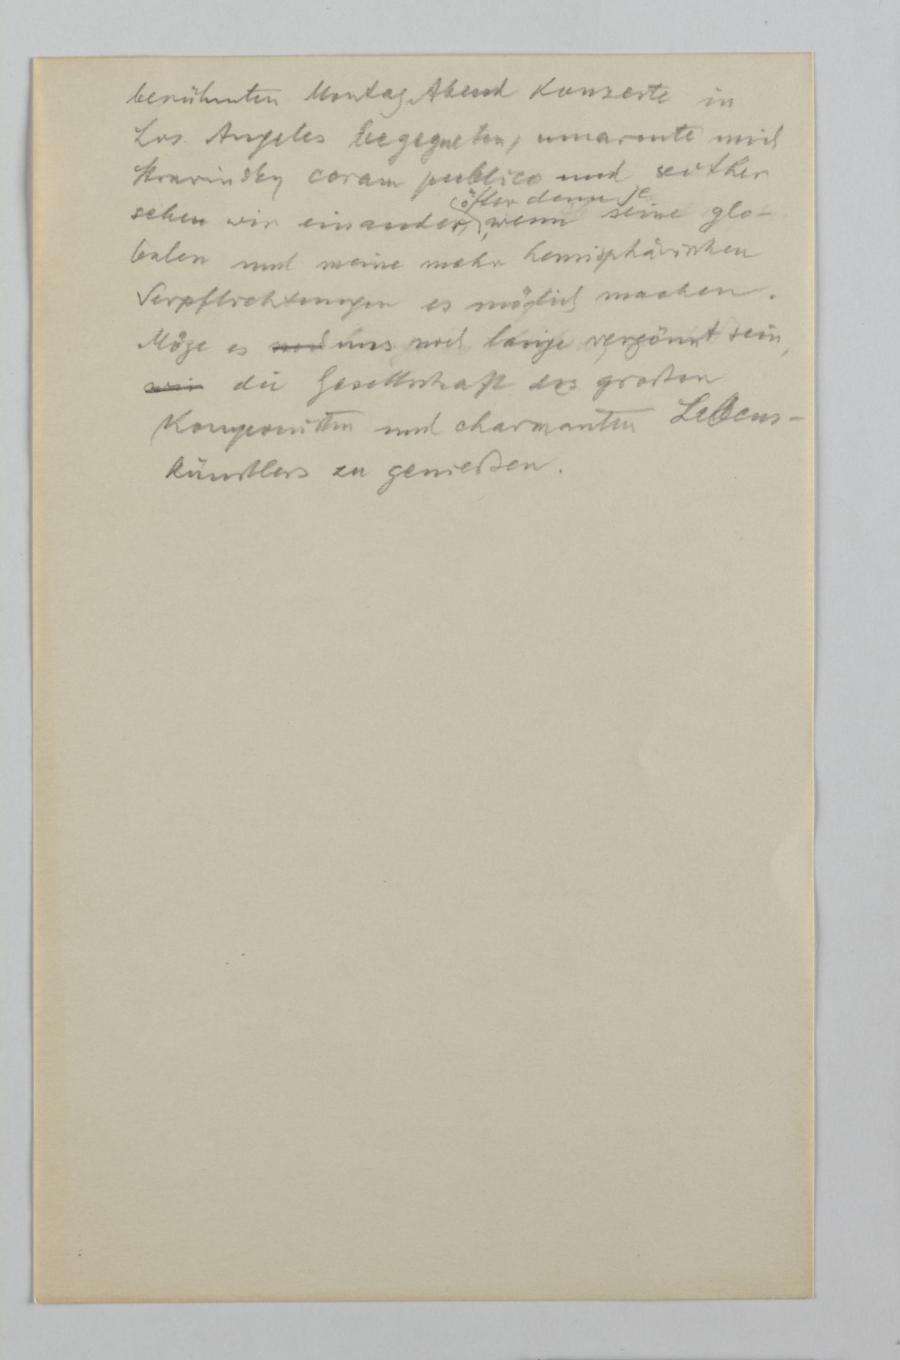 berühmten Montag Abend Konzerte in
Los Angeles begegneten, umarmte mich
Stravinsky coram publico und seither
öfter denn je
sehen wir einander, wenn seine glo-
balen und meine mehr hemisphärischen
Verpflichtungen es möglich machen.
Möge es noch uns noch lange vergönnt sein,
wir die Gesellschaft des großen
Komponisten und charmanten Lebens-
künstlers zu genießen.